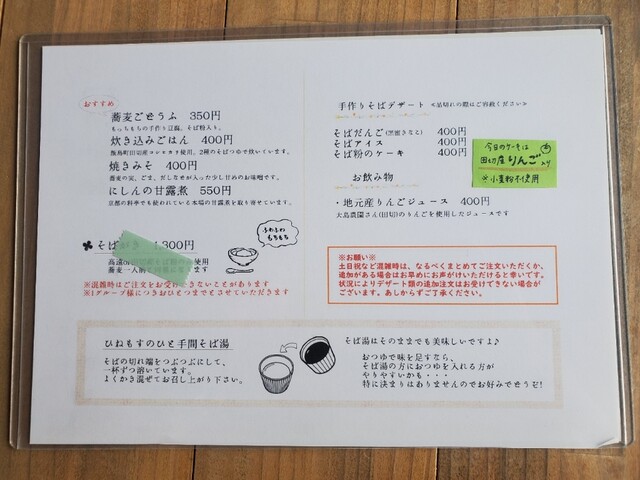 おすすめ
蕎麦ごどうふ 350円
もっちもちの手作り豆腐。そば粉入り。
炊き込みごはん 400円
飯島町田切産コシヒカリ使用、2種のそばつゆで炊いています。
焼きみそ 400円
蕎麦の実、ごま、だしなせが入った少し甘めのお味噌です。
にしんの甘露煮 550円
京都の料亭でも使われている本場の甘露煮を取り寄せています。
そばがき 1,300円
ふわふわ
もちもち
※混雑時はご注文をお受けできないことがあります
※1グループ様につきおひとつまでとさせていただきます
手作りそばデザート <品切れの際はご容赦ください>
そばだんご(黒蜜きなこ) 400円
そばアイス 400円
そば粉のケーキ 400円
今日のケーキは
田切産りんご入り
※小麦粉不使用
お飲み物
・地元産りんごジュース 400円
大島農園さん(田切)のりんごを使用したジュースです
※お願い※
土日祝など混雑時は、なるべくまとめてご注文いただくか、
追加がある場合はお早めにお声がけいただけると幸いです。
状況によりデザート類の追加注文はお受けできない場合が
ございます。あしからずご了承ください。
ひねもすのひと手間そば湯
そばの切れ端をつぶつぶにして、
一杯ずつ溶いています。
よくかき混ぜてお召し上がり下さい。
そば湯はそのままでも美味しいですよ♪
おつゆで味を足すなら、
そば湯の方におつゆを入れる方が
やりやすいかも・・・
特に決まりはありませんのでお好みでどうぞ!